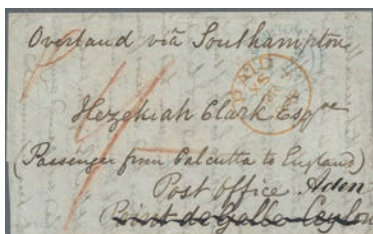 Overland via Southampton
PAID
Hezekiah Clark Esqre
(Passenger from Calcutta to England)
Post Office Aden
Point de Galle Ceylon